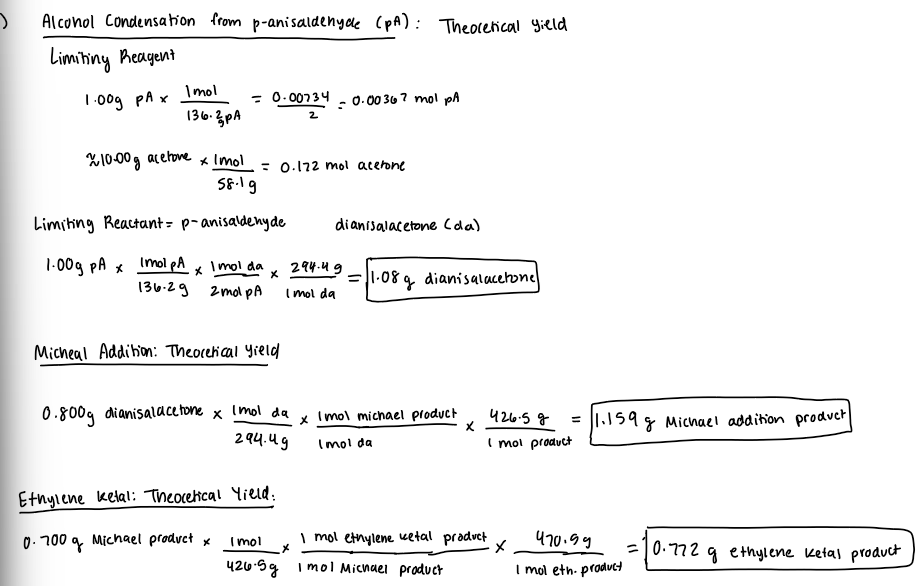 ) Alcohol Condensation from p-anisaldehyde (pA): Theoretical Yield
Limiting Reagent
1.00g pA x 1mol / 136.2g pA = 0.00734 / 2 = 0.00367 mol pA
≈10.00g acetone x 1mol / 58.1g = 0.172 mol acetone
Limiting Reactant = p-anisaldehyde dianisalacetone (da)
1.00g pA x 1mol pA / 136.2g x 1mol da / 2mol pA x 294.4g / 1mol da = 1.08g dianisalacetone
Micheal Addition: Theoretical Yield
0.800g dianisalacetone x 1mol da / 294.4g x 1mol michael product / 1mol da x 426.5g / 1 mol product = 1.159g Michael addition product
Ethylene Ketal: Theoretical Yield:
0.700g Michael product x 1mol / 426.5g x 1 mol ethylene ketal product / 1mol Michael product x 470.5g / 1 mol eth. product = 0.772g ethylene ketal product